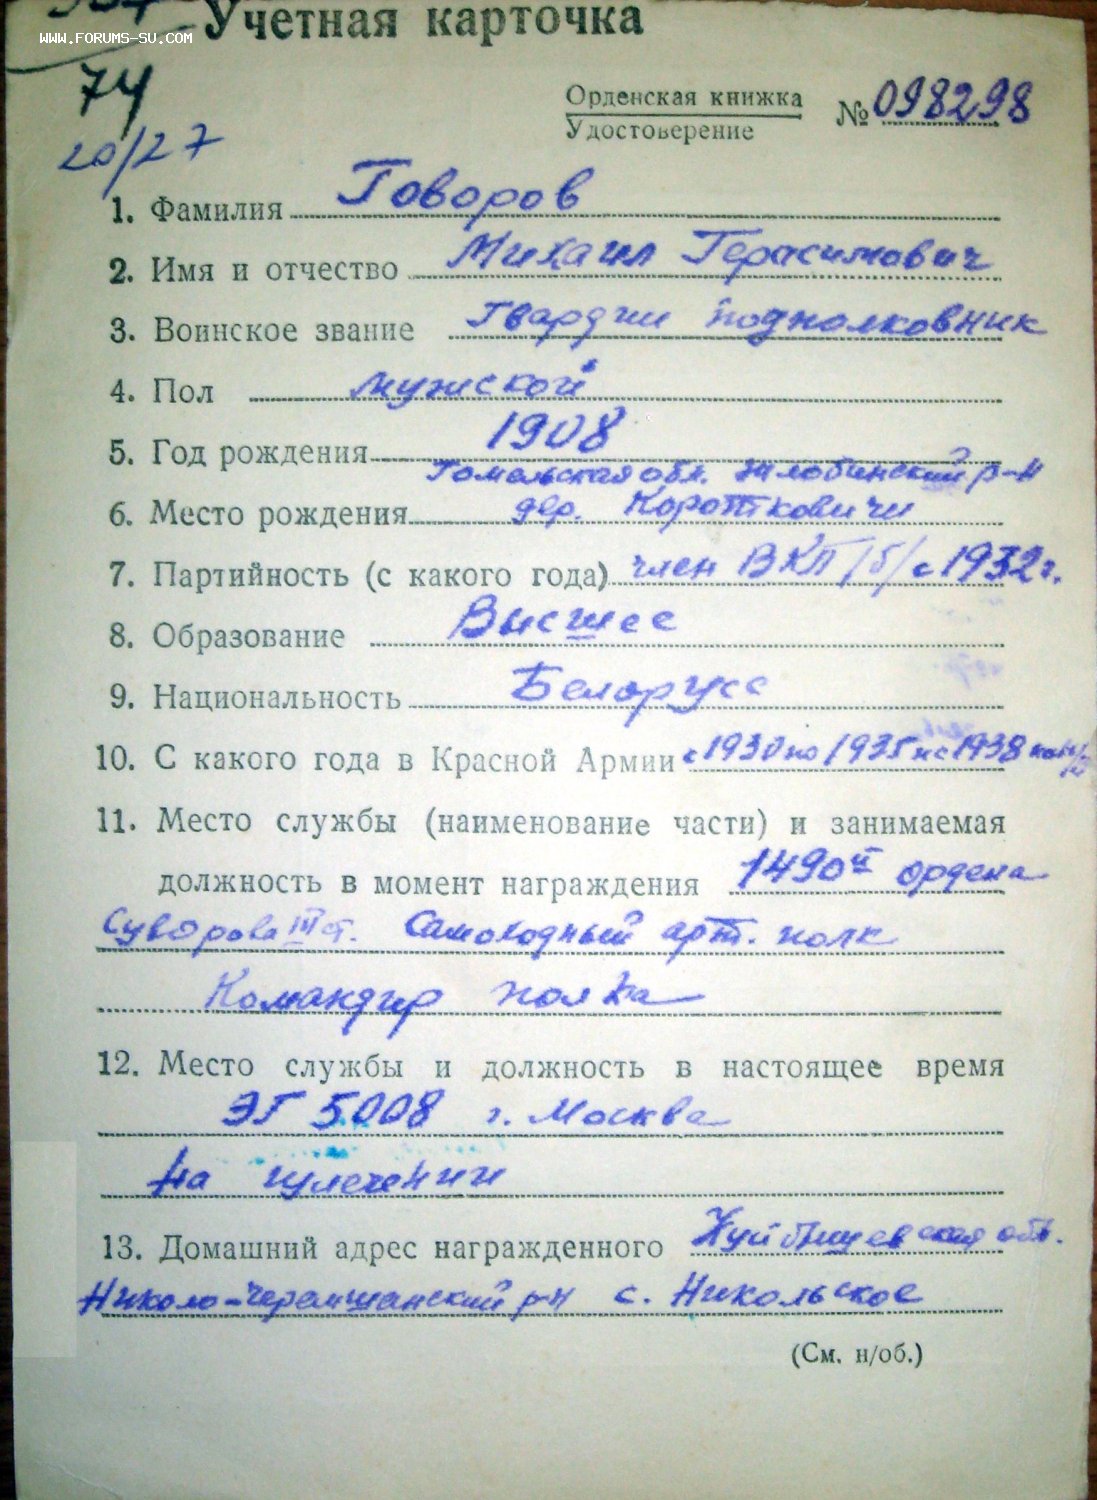 Учетная карточка
WWW.FORUMS-SU.COM
74
20/27
Орденская книжка
Удостоверение
№ 098298
1. Фамилия Говоров
2. Имя и отчество Михаил Герасимович
3. Воинское звание Гвардии подполковник
4. Пол мужской
5. Год рождения 1908
Гомельская обл. Жлобинский р-н
6. Место рождения дер. Коротковичи
7. Партийность (с какого года) член ВКП/б/ с 1932 г.
8. Образование Высшее
9. Национальность Белорусс
10. С какого года в Красной Армии с 1930 по 1935 и с 1938 по
11. Место службы (наименование части) и занимаемая
должность в момент награждения 1490й ордена
Суворова III ст. Самоходный арт. полк
Командир полка
12. Место службы и должность в настоящее время
ЭГ 5008 г. Москва
на излечении
13. Домашний адрес награжденного Куйбышевская обл.
Николо-Черемшанский р-н с. Никольское
(См. н/об.)